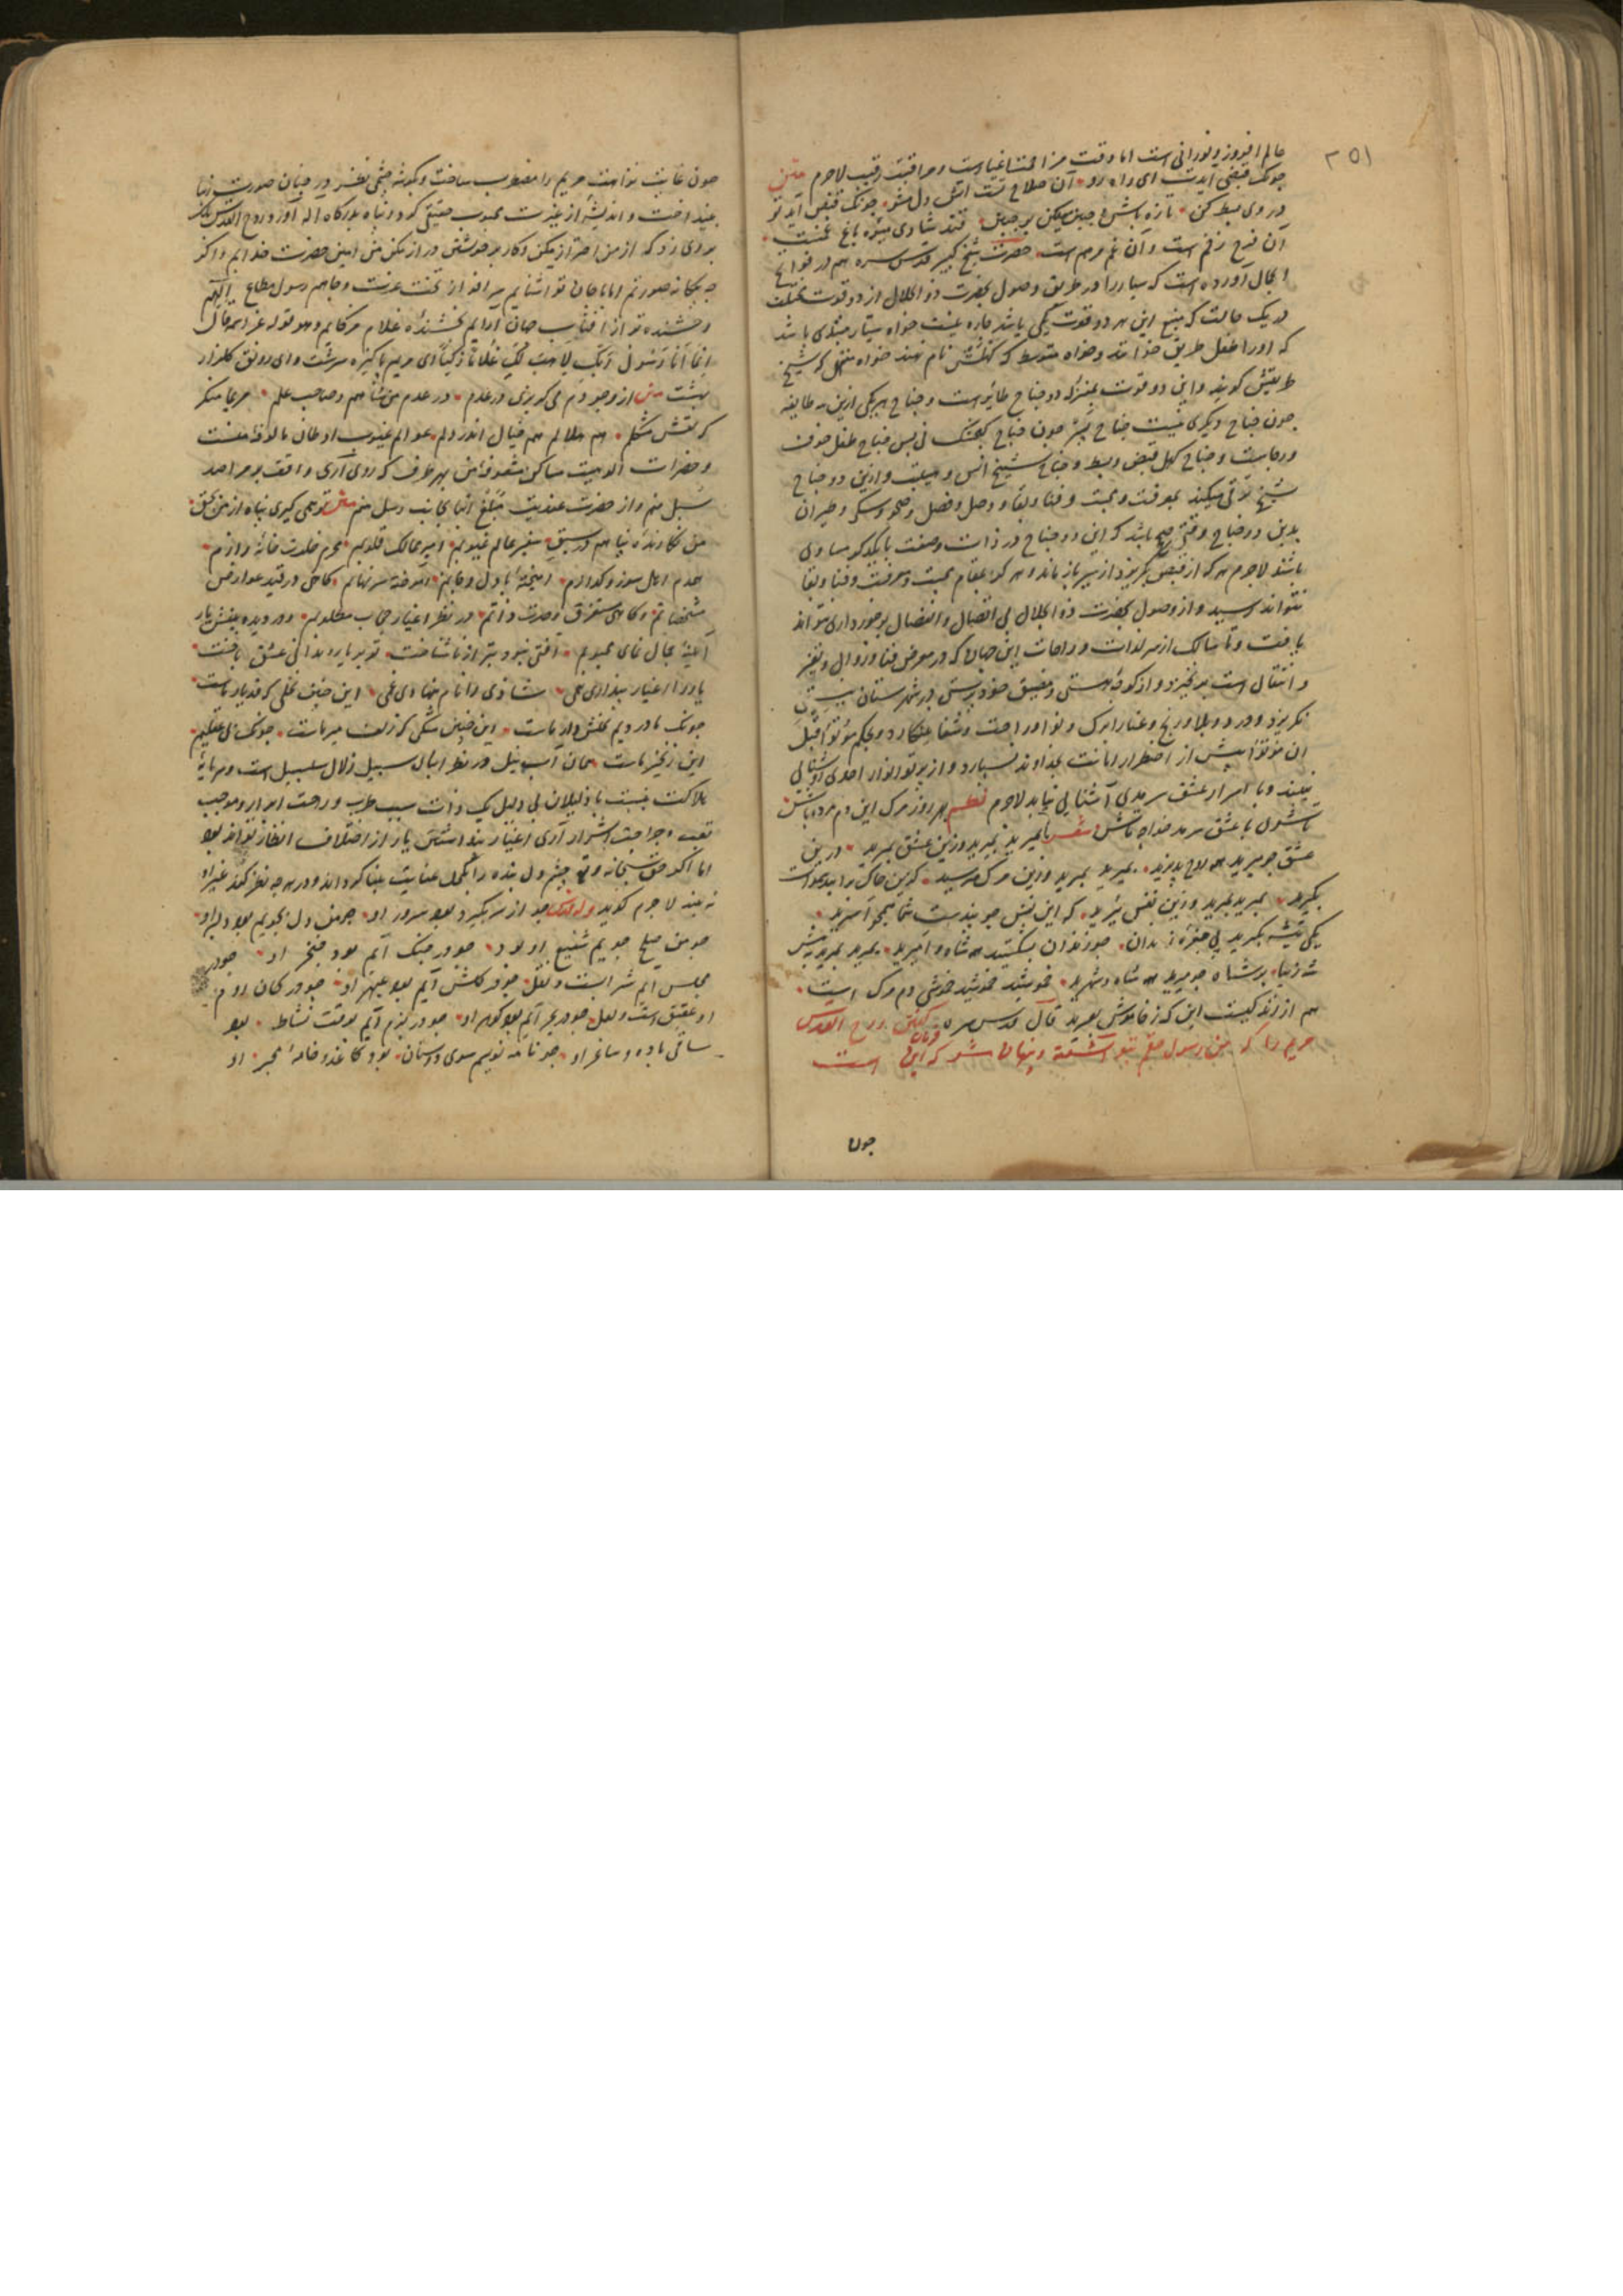 ۲۵۱
عالم افروز و نورانی است اما وقت مزاحمت اغیارست و مراقبت رقیب لاجرم متن
چونک قبضی آیدت ای راه رو آن صلاح تست آتش دل مشو چونک قبض آید تو
در وی بسط کن تازه باش و چین میفکن بر جبین قند شادی میوه باغ غمست
آن فرح زخم است و آن غم مرهم است حضرت شیخ کبیر قدس سره هم در فواتح
الجمال آورده است که سیار را در طریق وصول بحضرت ذو الجلال از دو قوت مختلف
در یک حالت که منبع این هر دو قوت یکی باشد چاره نیست خواه سیار مبتدی باشد
که او را طفل طریق خوانند و خواه متوسط که کهلش نام نهند خواه منتهی که شیخ
طریقش گویند و این دو قوت بمنزله دو جناح طائر است و جناح هر یکی ازین سه طایفه
چون جناح دیگری نیست جناح چون جناح گنجشک نی پس جناح طفل خوف
و رجاست و جناح کهل قبض و بسط و جناح شیخ انس و هیبت و ازین دو جناح
شیخ ترقی میکند بمعرفت و محبت و فنا و بقا و وصل و فصل و صحو و سکر و طیران
بدین دو جناح وقتی صحیح باشد که این دو جناح در ذات و صفت بایکدیگر مساوی
باشند لاجرم هر که از قبض بگریزد از سیر باز ماند و هرگز بمقام محبت و معرفت و فنا و بقا
نتواند رسید و از وصول بحضرت ذو الجلال بی اتصال و انفصال برخورداری نتواند
یافت و تا سالک از سر لذات و راحات این جهان که در معرض فنا و زوال و تغیر
و انتقال است بر نخیزد و از کوی هستی و مضیق خودپرستی در شهرستان نیستی
نگریزد و درد و بلا و رنج و عنا را برگ و نوا و راحت و شفا نینگارد و بحکم موتوا قبل
ان تموتوا پیش از اضطرار امانت بخداوند نسپارد و از پرتو انوار احدی روشنایی
نبیند و با اسرار عشق سرمدی آشنایی نیابد لاجرم نظم هر روز مرگ این دم مرده باش
تا شوی با عشق سرمد خواجه تاش شعر بمیرید بمیرید درین عشق بمیرید درین
عشق چو میرید همه روح پذیرید بمیرید بمیرید وزین مرگ مترسید کزین خاک برآیید سموات
بگیرید بمیرید بمیرید وزین نفس ببرید که این نفس چو بندست شما همچو اسیرید
یکی تیشه بگیرید پی حفره زندان چو زندان بشکستید همه شاه و امیرید بمیرید بمیرید به پیش
شه زیبا بر شاه چو میرید همه شاه و شهیرید خموشید خموشید خموشی دم مرگ است
هم از زندگیست این که ز خاموش نفیرید قال قدس سره گفتن روح القدس
مریم را که من رسول حقم بتو آشفته و پنهان مشو که فرمان این است
چون
چون غایت نواهت مریم را مضطرب ساخت و بگوشه چشمی نظر در چنان صورت زیبا
بینداخت و اندیشه از غیرت محبوب حقیقی کرد و پناه بدرگاه اله آورد روح القدس بانگ
بر وی زد که از من احتراز مکن و کار بر خویشتن دراز مکن من امین حضرت خدایم و اگر
چه بیگانه صورتم اما با جان تو آشنایم سرافراز تخت عزت و جاهم رسول مطاع الهم
درخشنده تر از آفتاب جهان آرایم بخشنده غلام زکیایم و هو قوله عز و جل قال
انما انا رسول ربک لاهب لک غلاما زکیا ای مریم پاکیزه سرشت و ای رونق گلزار
بهشت متن از وجودم می گریزی در عدم در عدم من شاهم و صاحب علم مریما بنگر
که نقش مشکلم هم هلالم هم خیال اندر دلم عوالم غیوب اوطان مالوفه منست
و حضرات الوهیت مساکن مشعوفه من بهر طرف که روی آری واقف بر مراصد
سبل منم و از حضرت عندیت مبلغ انبا بجانب رسل منم متن تو همی گیری پناه از من بحق
من نگارنده پناهم در سبق سفیر عالم غیوبم امیر ممالک قلوبم محرم خلوت خانه رازم
همدم اهل سوز و گدازم آمیخته با دل و جانم افروخته سر نهانم گاهی در قید عوارض
مشخصاتم و گاهی مستغرق وحدت ذاتم در نظر اغیار حجاب مطلوبم و در دیده بینش یار
آیینه جمال نمای محبوبم آفتی نبود بتر از ناشناخت تو بر یار و ندانی عشق باخت
یار را اغیار پنداری همی شادی را نام بنهادی غمی این چنین نخلی که قد یار ماست
چونک ما دزدیم نخلش دار ماست این چنین مشکین که زلف میر ماست چونک بی عقلیم
این زنجیر ماست همان آب نیل در نظر اهل سبیل زلال سلسبیل است و سرمایه
هلاکت نسبت با ذلیلان بی دلیل یک ذات سبب طرب و راحت ابرار و موجب
تعب و جراحت اشرار آری اغیار پنداشتن یار از اختلاف انظار تواند بود
اما اگر حق سبحانه و تعالی چشم دل بنده را بکحل عنایت بینا گرداند و در هر چه نظر کند غیر او
نه بیند لاجرم گوید وله قدس چو از سر بگیرم بود سرور او چو من دل بجویم بود دلبر او
چو من صلح جویم شفیع او بود چو در جنگ آیم بود خنجر او چو در
مجلس آیم شرابست و نقل چو در گلشن آیم بود عبهر او چو در کان روم
او عقیق است و لعل چو در بحر آیم بود گوهر او چو در بزم آیم بوقت نشاط بود
ساقی باده و ساغر او چو نامه نویسم سوی دوستان بود کاغذ و خامه و مجبر او